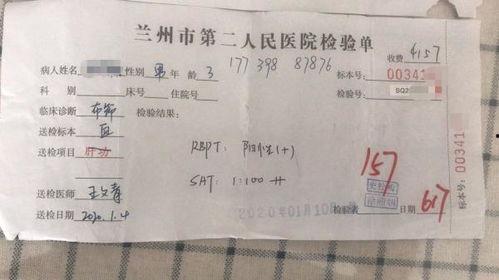 兰州市第二人民医院检验单
收费 4157
病人姓名 性别 男 年龄 3 177398 87876 标本号: 00341
科别 床号 住院号 检验号: SQ2
临床诊断 布病 检验结果:
送检标本 血
送检项目 肝功 RBPT: 阳性(+)
157
SAT: 1:100 ++
送检医师
2020年01月10日
送检日期 2020.1.4 检验者 日期 617
标本号: 00341